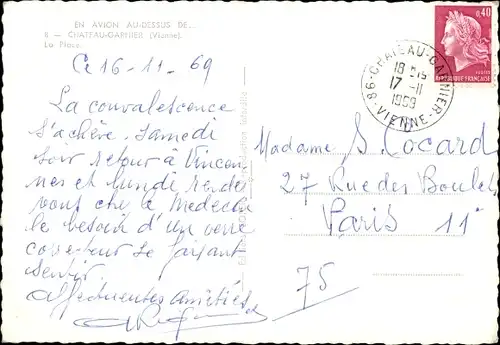 EN AVION AU-DESSUS DE...
8 — CHATEAU-GARNIER (Vienne).
La Place.
Ce 16-11-69
La convalescence
s'achève. Samedi
soir retour à Vincen
nes et lundi rendez
vous chez le Medecin
le besoin d'un verre
correcteur se faisant
sentir.
affectueuses Amitiés
0,40
REPUBLIQUE FRANÇAISE
86 - CHATEAU-GARNIER - VIENNE
18 H 15
17 - 11
1969
Madame S. Cocard
27 Rue des Boulets
Paris 11e
75